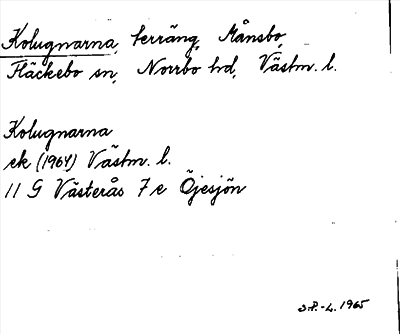 Kolugnarna, terräng, Månsbo,
Fläckebo sn, Norrbo hd, Västm. l.
Kolugnarna
ek (1964) Västm. l.
11 G Västerås 7 e Öjesjön
1965